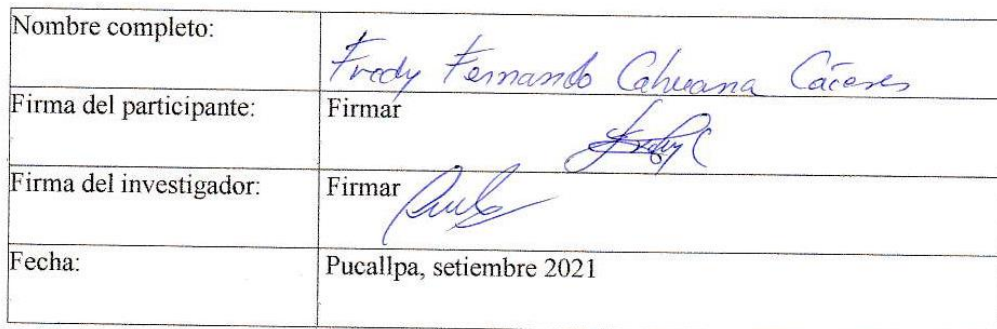 Nombre completo:
Fredy Fernando Cahuana Cáceres
Firma del participante:
Firmar
Fredy C
Firma del investigador:
Firmar
Fecha:
Pucallpa, setiembre 2021